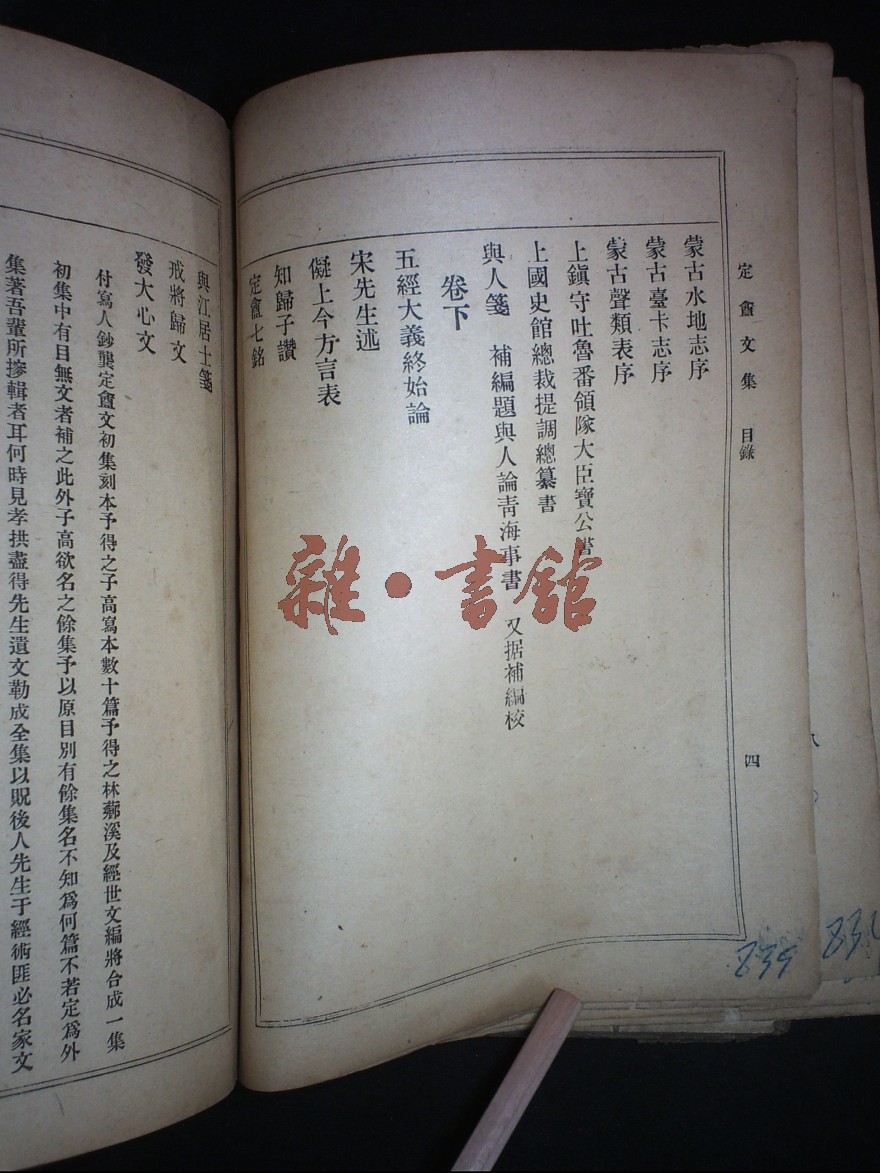 定盦文集 目錄
四
蒙古水地志序
蒙古臺卡志序
蒙古聲類表序
上鎮守吐魯番領隊大臣寶公書
上國史館總裁提調總纂書
與人箋 補編題與人論青海事書 又据補編校
卷下
五經大義終始論
宋先生述
儗上今方言表
知歸子讚
定盦七銘
與江居士箋
戒將歸文
發大心文
付寫人鈔龔定盦文初集刻本予得之子高寫本數十篇予得之林薌溪及經世文編將合成一集
初集中有目無文者補之此外子高欲名之餘集予以原目別有餘集名不知爲何篇不若定爲外
集著吾輩所摻輯者耳何時見孝拱盡得先生遺文勒成全集以貺後人先生于經術匪必名家文
雜·書館
839